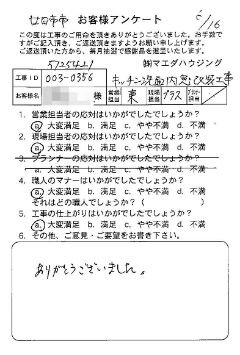 お客様アンケート
6/16
この度は工事のご用命を頂きありがとうございました。お手数で
すがご記入頂き、ご返送頂きますようお願い申し上げます。
ご返送頂いた方から、毎月抽選で感謝品を進呈いたします。
57254421
㈱マエダハウジング
工事ID 003-0356
キッチン洗面内窓改装工事
お客様名 様 営業担当 東 現場担当 プランナー担当
1. 営業担当者の応対はいかがでしたでしょうか?
a 大変満足 b. 満足 c. やや不満 d. 不満
2. 現場担当者の応対はいかがでしたでしょうか?
a 大変満足 b. 満足 c. やや不満 d. 不満
3. プランナーの応対はいかがでしたでしょうか?
a. 大変満足 b. 満足 c. やや不満 d. 不満
4. 職人のマナーはいかがでしたでしょうか?
a 大変満足 b. 満足 c. やや不満 d. 不満
それはどの職人でしょうか?( )
5. 工事の仕上がりはいかがでしたでしょうか?
a 大変満足 b. 満足 c. やや不満 d. 不満
6. その他、ご意見・ご要望をお書き下さい。
ありがとうございました。